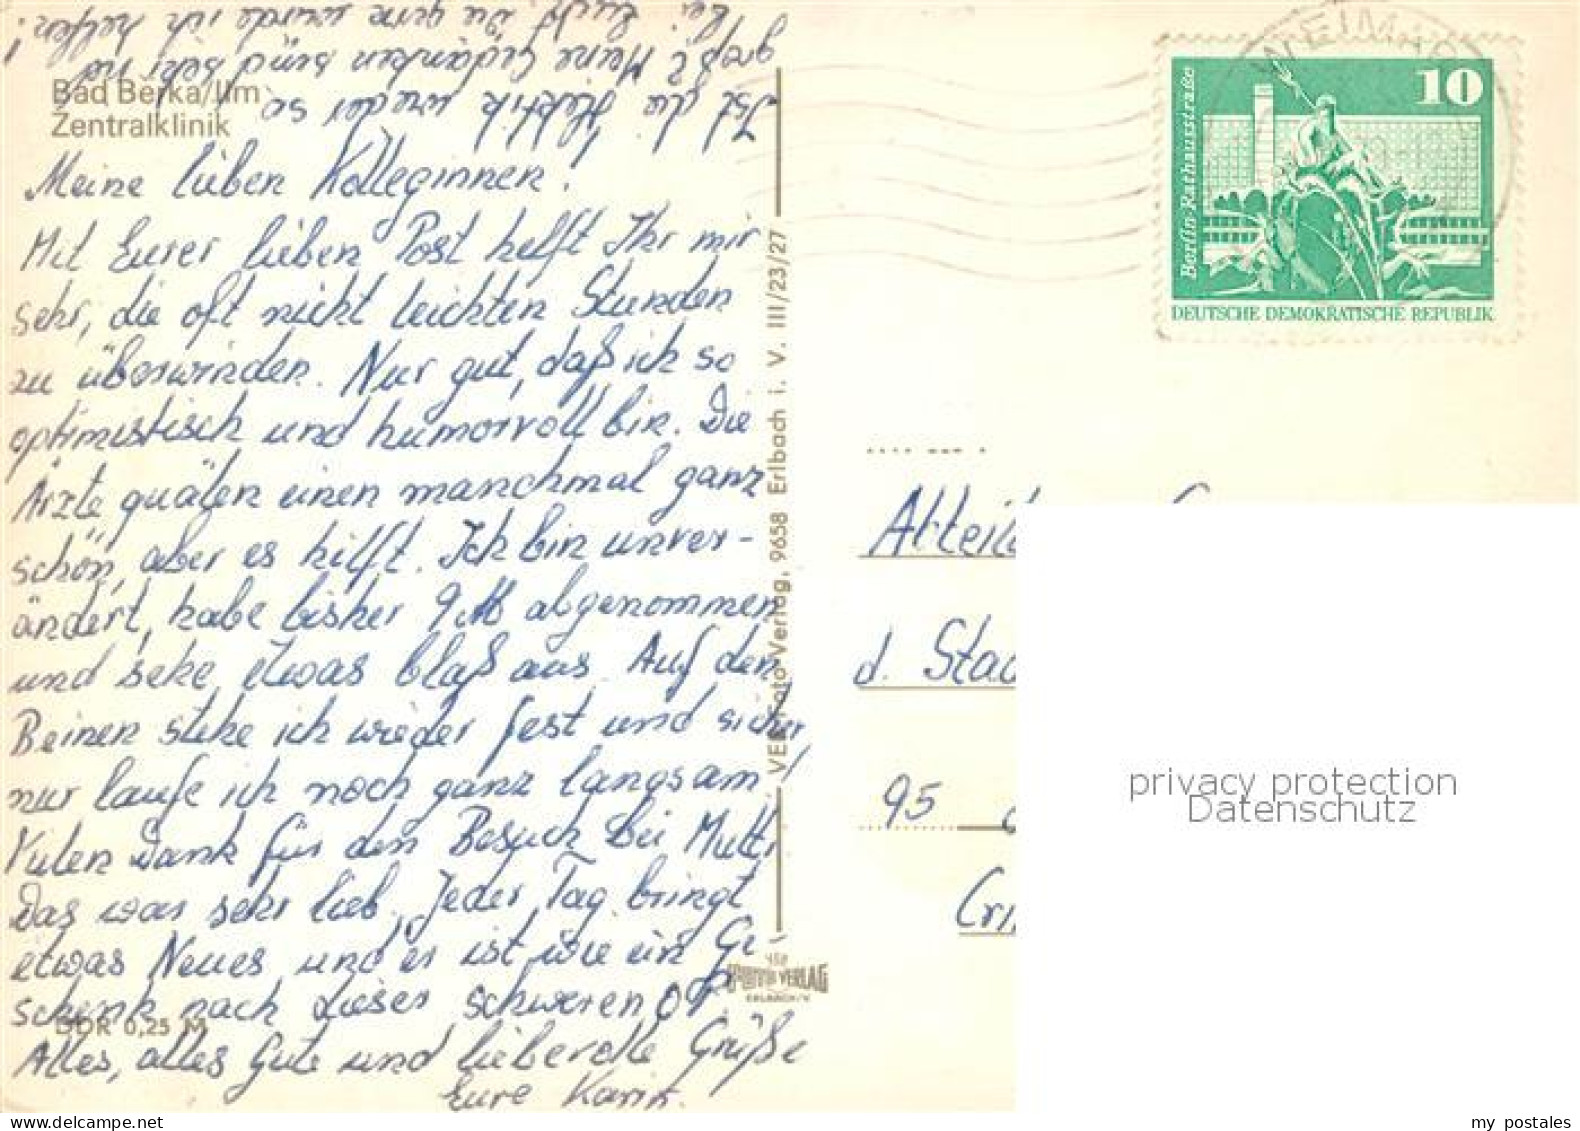 Bad Berka/Ilm
Zentralklinik
Meine lieben Kolleginnen!
Mit Eurer lieben Post helft Ihr mir
sehr, die oft nicht leichten Stunden
zu überwinden. Nur gut, daß ich so
optimistisch und humorvoll bin. Die
Ärzte quälen einen manchmal ganz
schön, aber es hilft. Ich bin unver-
ändert, habe bisher 9 abgenommen
und sehe etwas blaß aus. Auf den
Beinen stehe ich wieder fest und sicher,
nur laufe ich noch ganz langsam!
Vielen Dank für den Besuch bei Mutti
Das war sehr lieb. Jeder Tag bringt
etwas Neues und es ist wie ein Ge
schenk nach dieser schweren OP
Alles, alles Gute und liebevolle Grüße
Eure Karin.
Ist die Hektik wieder so
groß? Meine Gedanken sind sehr oft
bei Euch! Zu gern würde ich helfen!
DDR 0,25 M
VEB Foto-Verlag, 9658 Erlbach i. V. III/23/27
VEB
VERLAG
ERLBACH/V.
WEIMAR
10
Berlin-Rathausstraße
DEUTSCHE DEMOKRATISCHE REPUBLIK
d.
95
privacy protection
Datenschutz
my postales